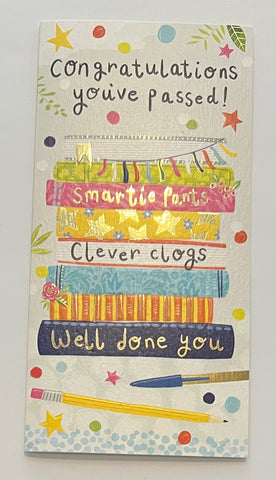 Congratulations
you've passed!
Smartie Pants
Clever clogs
Well done you